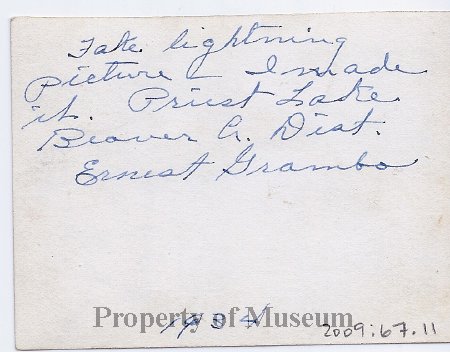 Fake lightning
picture – I made
it. Priest Lake
Beaver Cr. Dist.
Ernest Grambo
1934
Property of Museum
2009:67.11